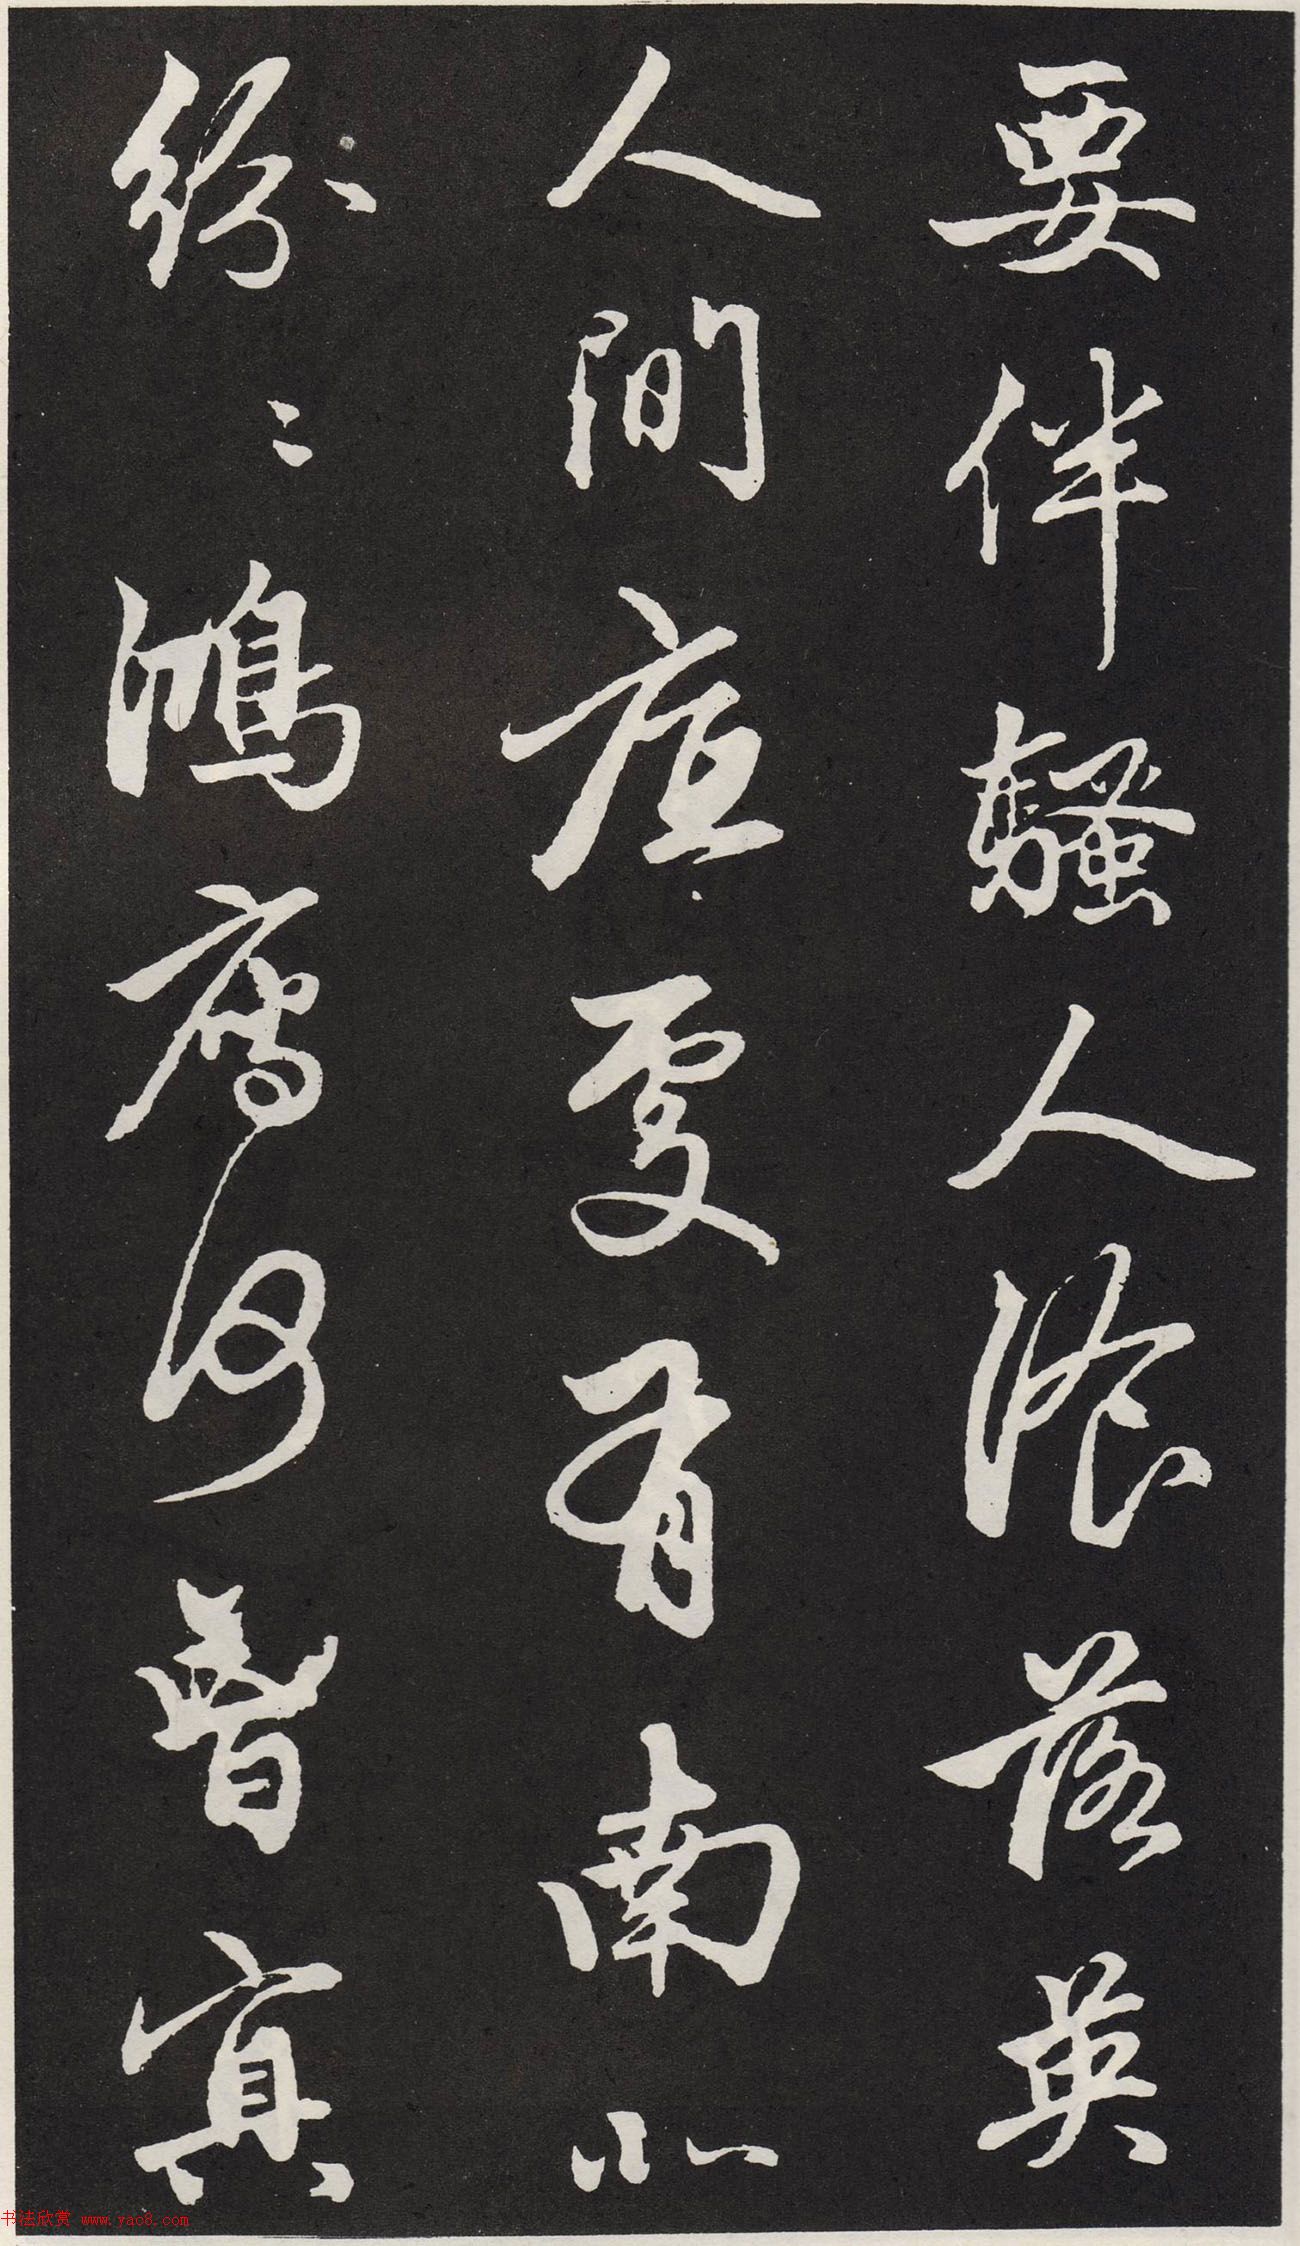 要伴騷人湌落英
人間底處有南北
紛〻鴻鴈何曾冥
书法欣赏 www.yac8.com